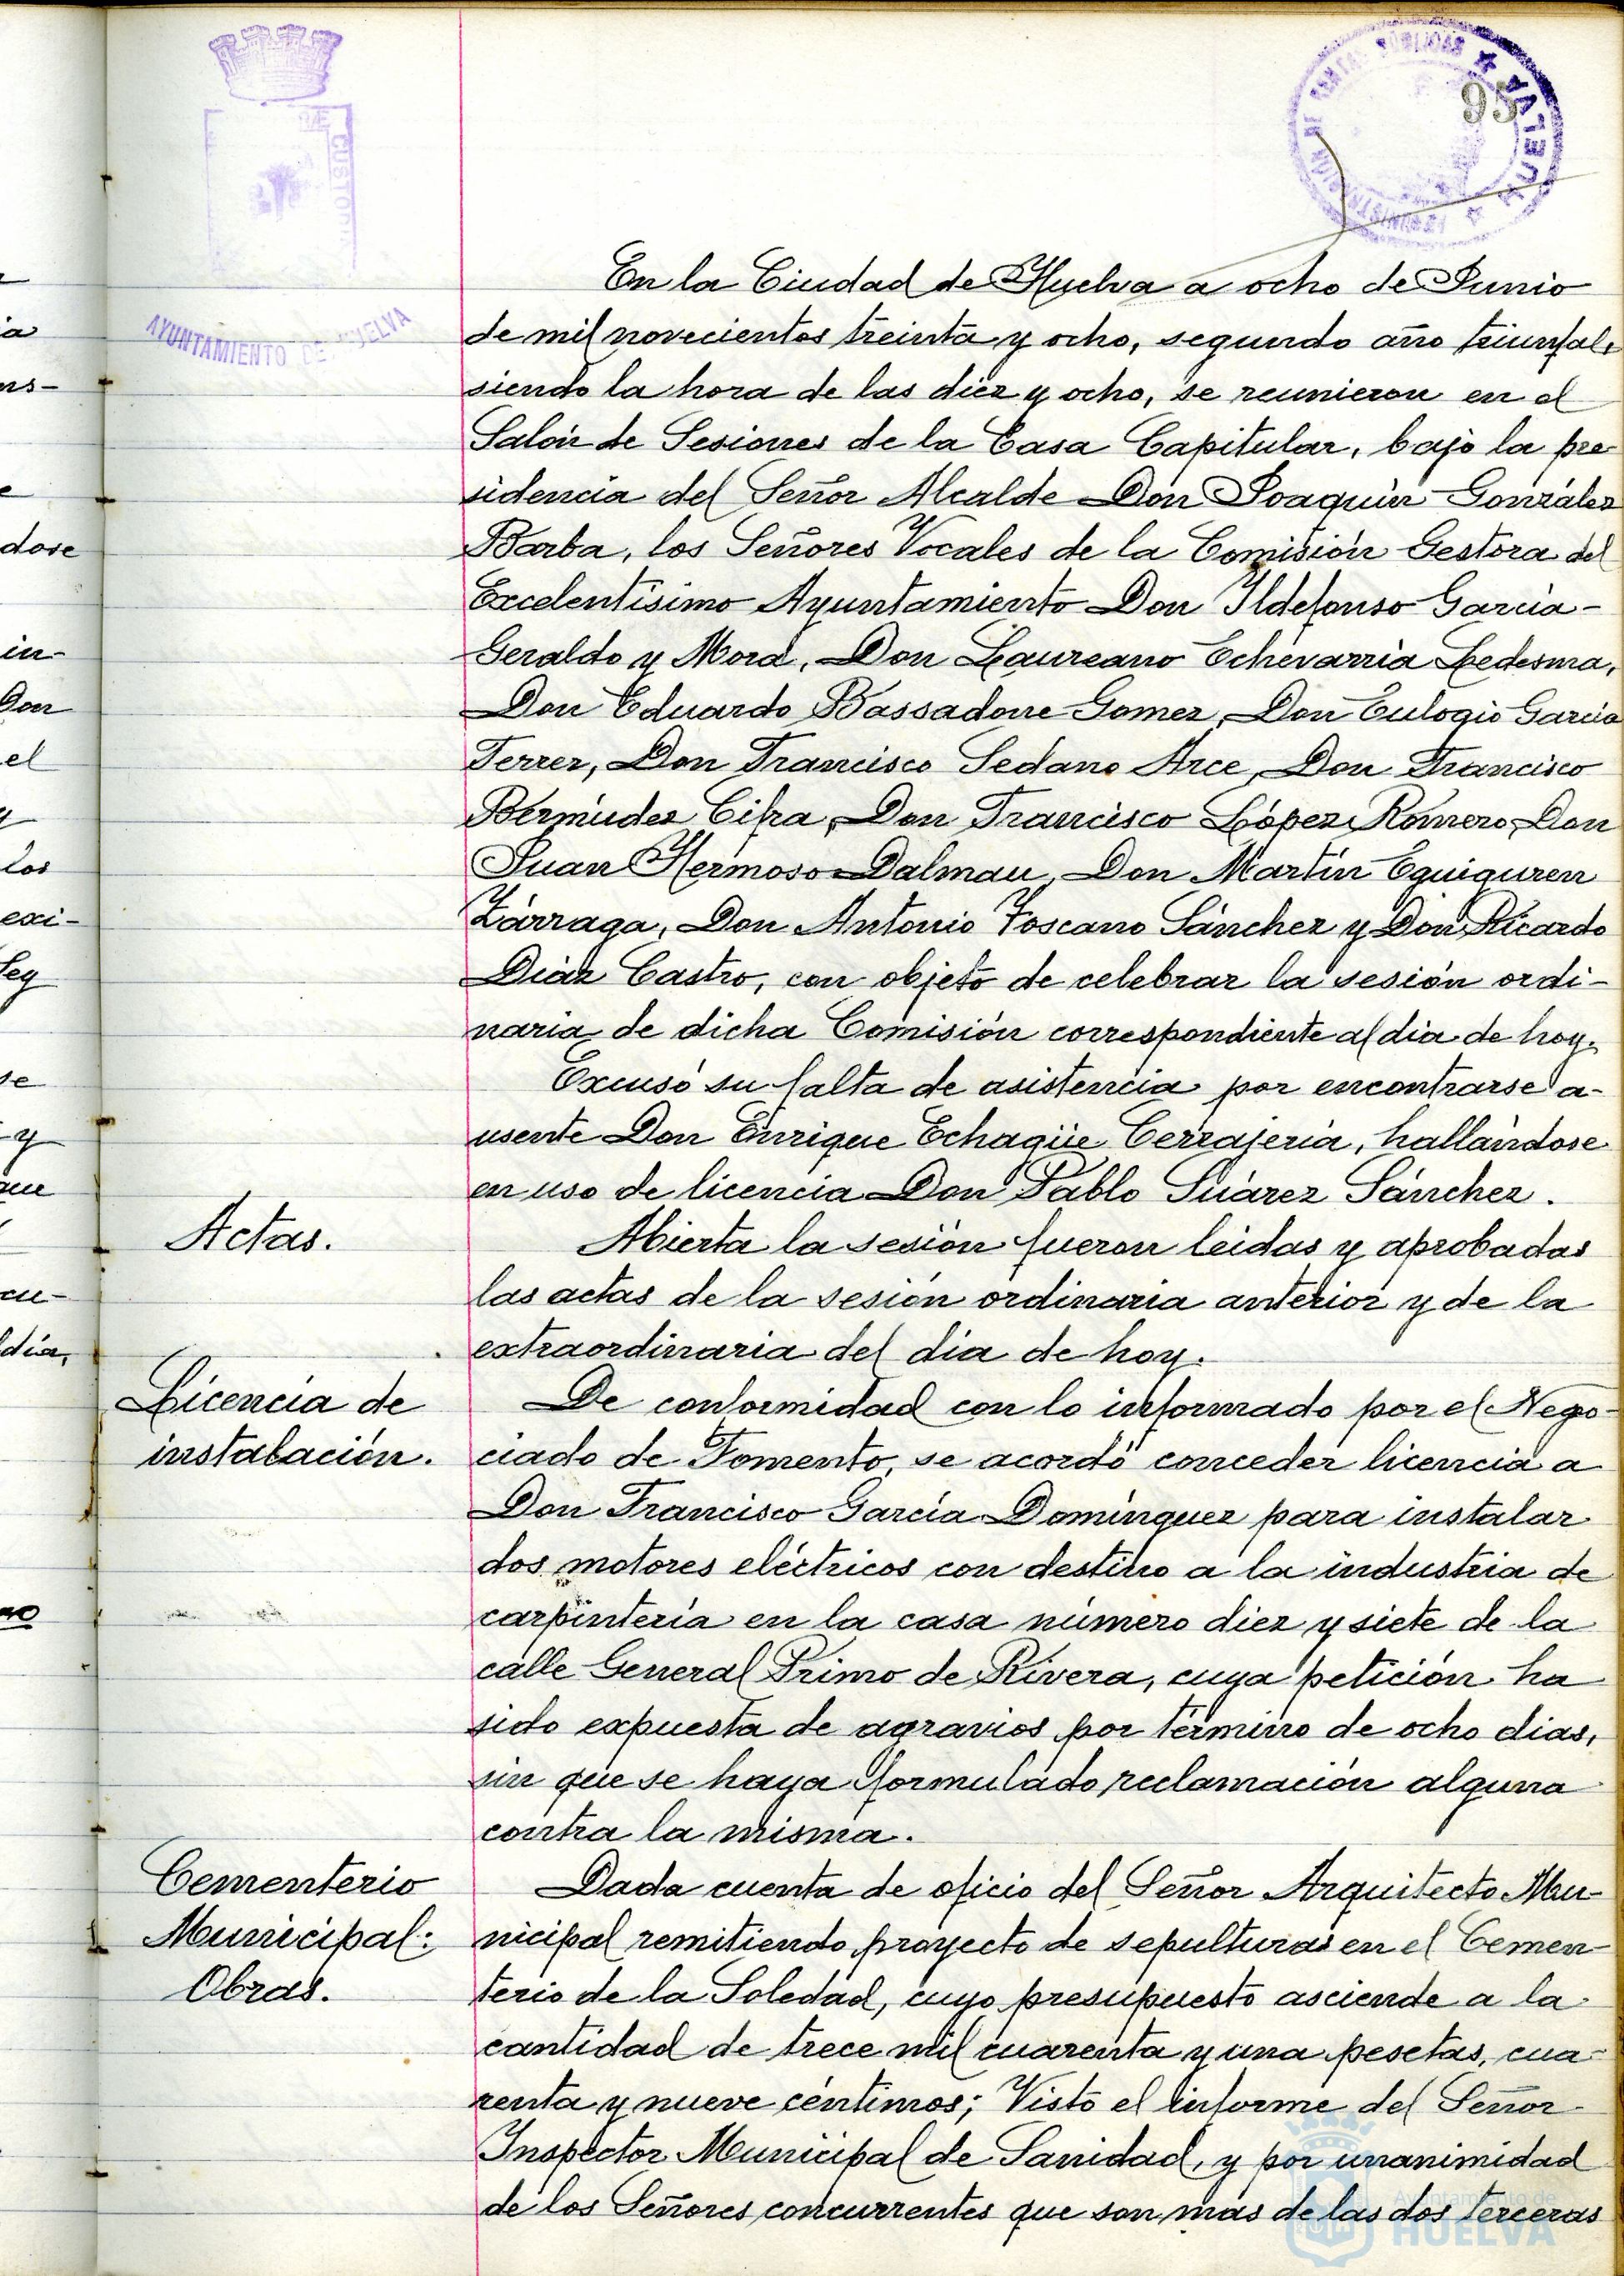 95
HUELVA
AYUNTAMIENTO DE HUELVA
CUSTODIA
En la Ciudad de Huelva a ocho de Junio
de mil novecientos treinta y ocho, segundo año triunfal,
siendo la hora de las diez y ocho, se reunieron en el
Salón de Sesiones de la Casa Capitular, bajo la pre-
sidencia del Señor Alcalde Don Joaquín González
Barba, los Señores Vocales de la Comisión Gestora del
Excelentísimo Ayuntamiento Don Ildefonso García-
Geraldo y Mora, Don Laureano Echevarría Ledesma,
Don Eduardo Bassadone Gomez, Don Eulogio García
Ferrer, Don Francisco Sedano Arce, Don Francisco
Bermúdez Cifra, Don Francisco López Romero, Don
Juan Hermoso Dalmau, Don Martín Eguiguren
Zárraga, Don Antonio Toscano Sánchez y Don Ricardo
Diáz Castro, con objeto de celebrar la sesión ordi-
naria de dicha Comisión correspondiente al dia de hoy.
Excusó su falta de asistencia por encontrarse a-
usente Don Enrique Echagüe Cerrajería, hallándose
en uso de licencia Don Pablo Suárez Sánchez.
Actas.
Abierta la sesión fueron leidas y aprobadas
las actas de la sesión ordinaria anterior y de la
extraordinaria del dia de hoy.
Licencia de
instalación.
De conformidad con lo informado por el Nego-
ciado de Fomento, se acordó conceder licencia a
Don Francisco García Domínguez para instalar
dos motores eléctricos con destino a la industria de
carpintería en la casa número diez y siete de la
calle General Primo de Rivera, cuya petición ha
sido expuesta de agravios por término de ocho dias,
sin que se haya formulado reclamación alguna
contra la misma.
Cementerio
Municipal:
Obras.
Dada cuenta de oficio del Señor Arquitecto Mu-
nicipal remitiendo proyecto de sepulturas en el Cemen-
terio de la Soledad, cuyo presupuesto asciende a la
cantidad de trece mil cuarenta y una pesetas, cua-
renta y nueve céntimos; Visto el informe del Señor
Inspector Municipal de Sanidad, y por unanimidad
de los Señores concurrentes que son más de las dos terceras
Ayuntamiento de
HUELVA